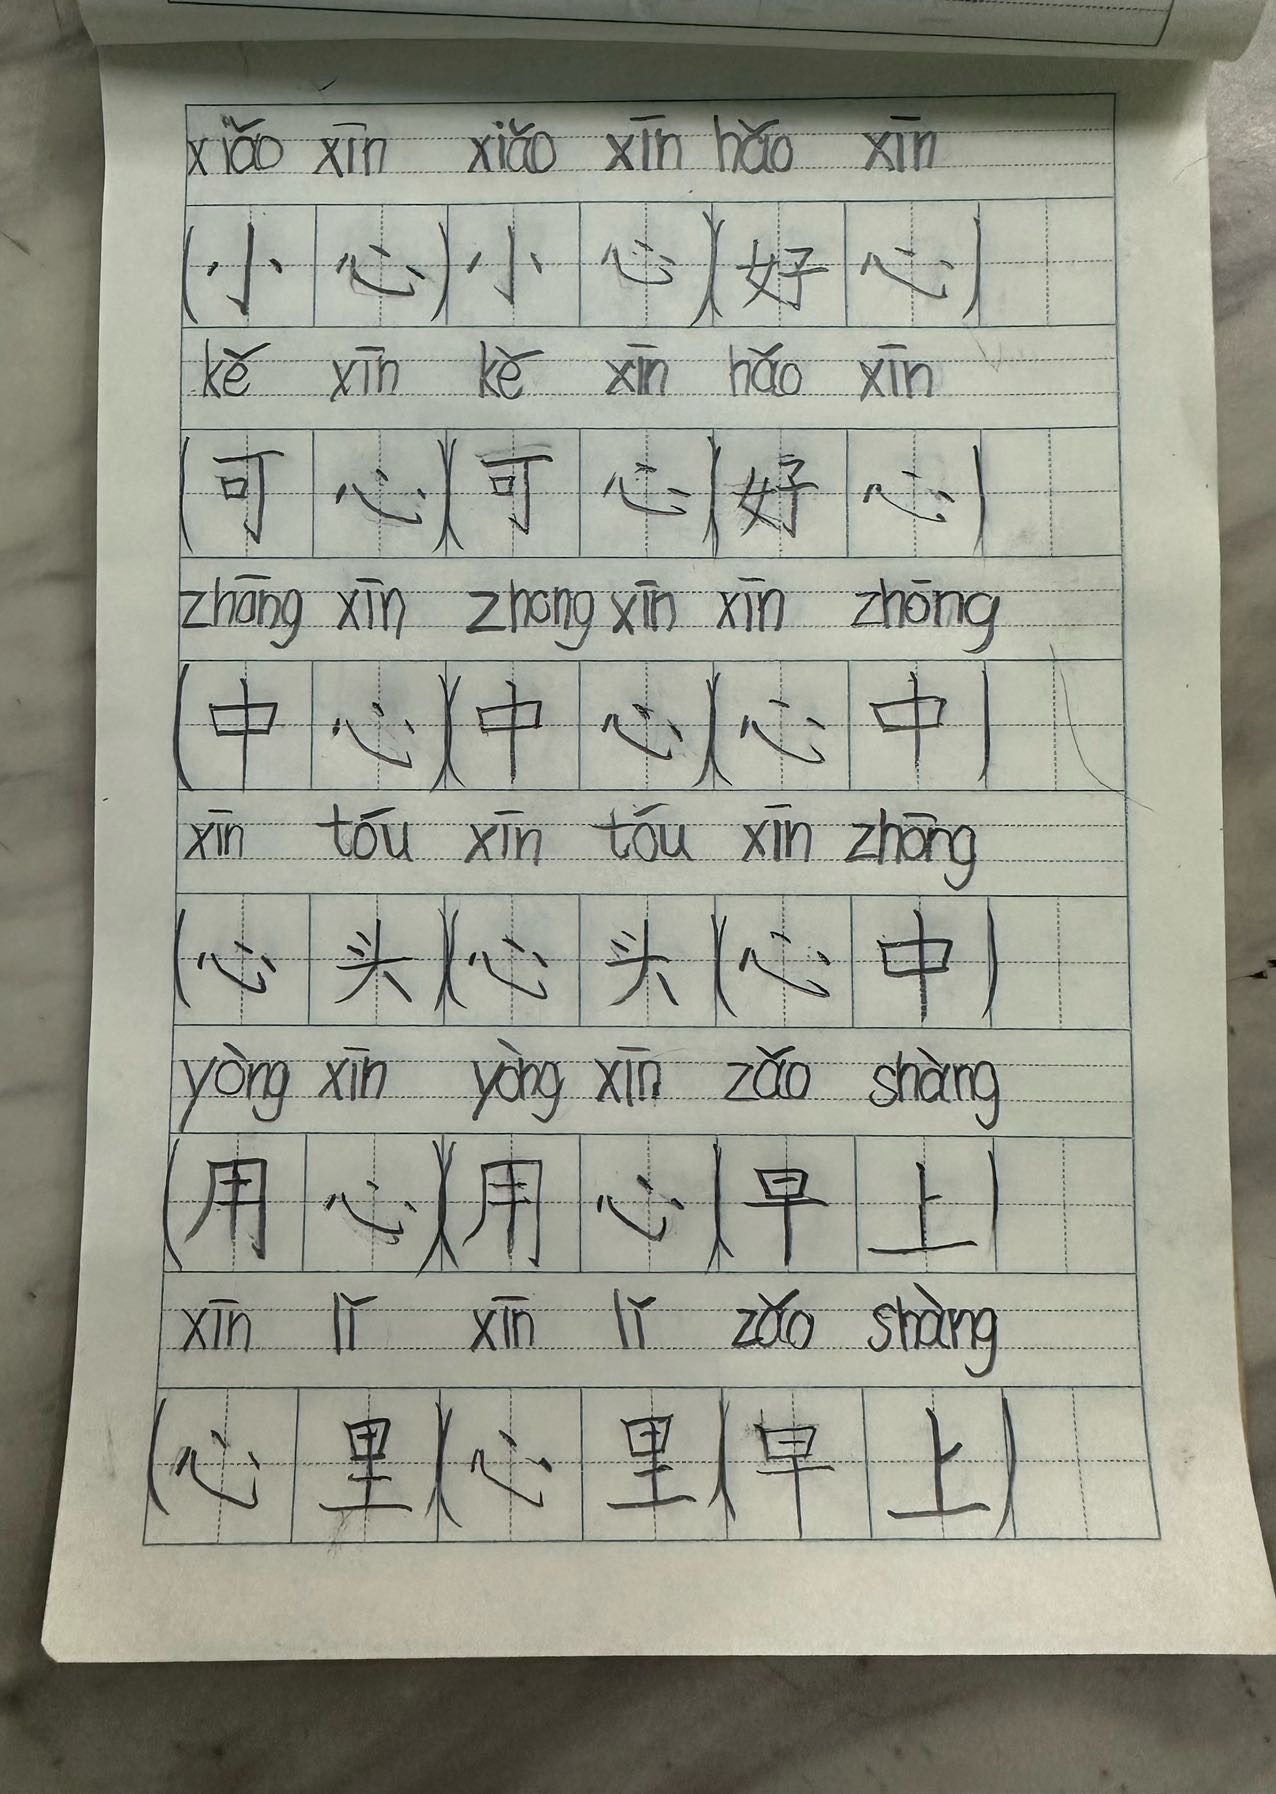 xiǎo xīn xiǎo xīn hǎo xīn
(小心)小心)(好心)
kě xīn kě xīn hǎo xīn
(可心)(可心)(好心)
zhāng xīn zhong xīn xīn zhōng
(中心)(中心)(心中)
xīn tóu xīn tóu xīn zhōng
(心头)(心头(心中)
yòng xīn yòng xīn zǎo shàng
(用心)(用心)(早上)
xīn lǐ xīn lǐ zǎo shàng
(心里)(心里)(早上)